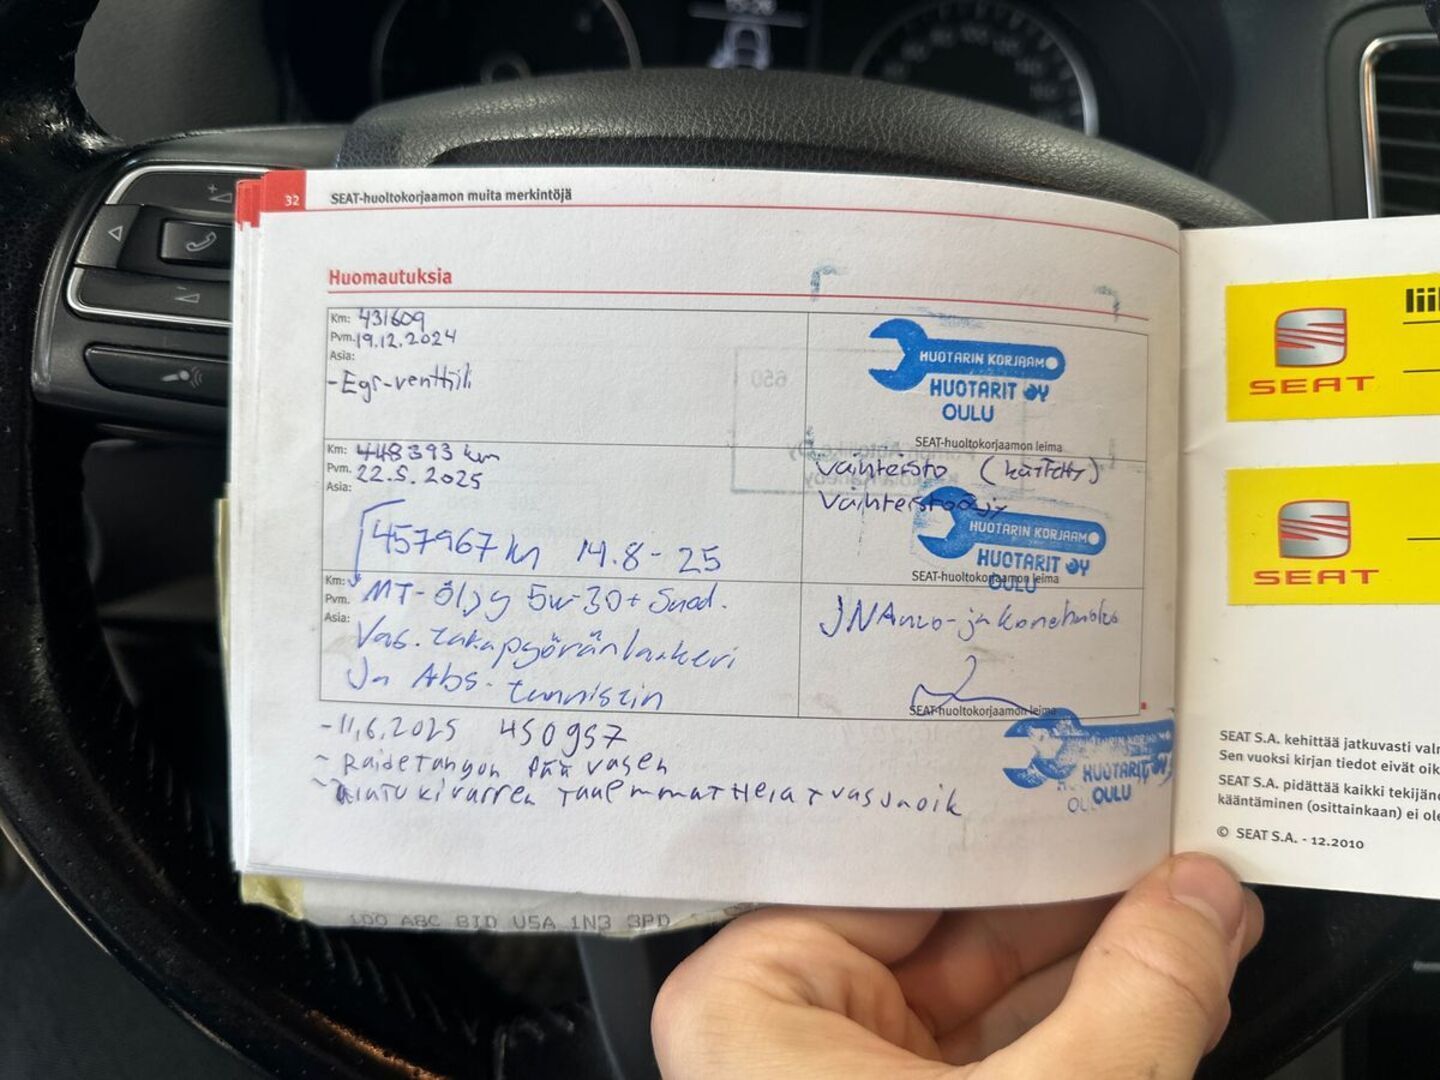 32
SEAT-huoltokorjaamon muita merkintöjä
Huomautuksia
Km: 431609
Pvm. 19.12.2024
Asia:
- Egr-venttiili
HUOTARIN KORJAAMO
HUOTARIT OY
OULU
SEAT-huoltokorjaamon leima
Km: 448393 km
Pvm. 22.5.2025
Asia:
vaihteisto (käytetty)
vaihteistoöljy
HUOTARIN KORJAAMO
HUOTARIT OY
OULU
SEAT-huoltokorjaamon leima
457967 km 14.8-25
Km:
Pvm.
Asia:
MT-öljy 5w-30 + Suod.
Vas. takapyöränlaakeri
Ja Abs-tunnistin
JN Auto- ja konehuolto
SEAT-huoltokorjaamon leima
- 11.6.2025 450957
- Raidetangon pää vasen
HUOTARIT OY
OULU
650
SEAT
SEAT
SEAT S.A. kehittää jatkuvasti
Sen vuoksi kirjan tiedot eivät
SEAT S.A. pidättää kaikki
kääntäminen (osittainkaan) ei
© SEAT S.A. - 12.2010
1DO ABC BID U5A 1N3 3PD